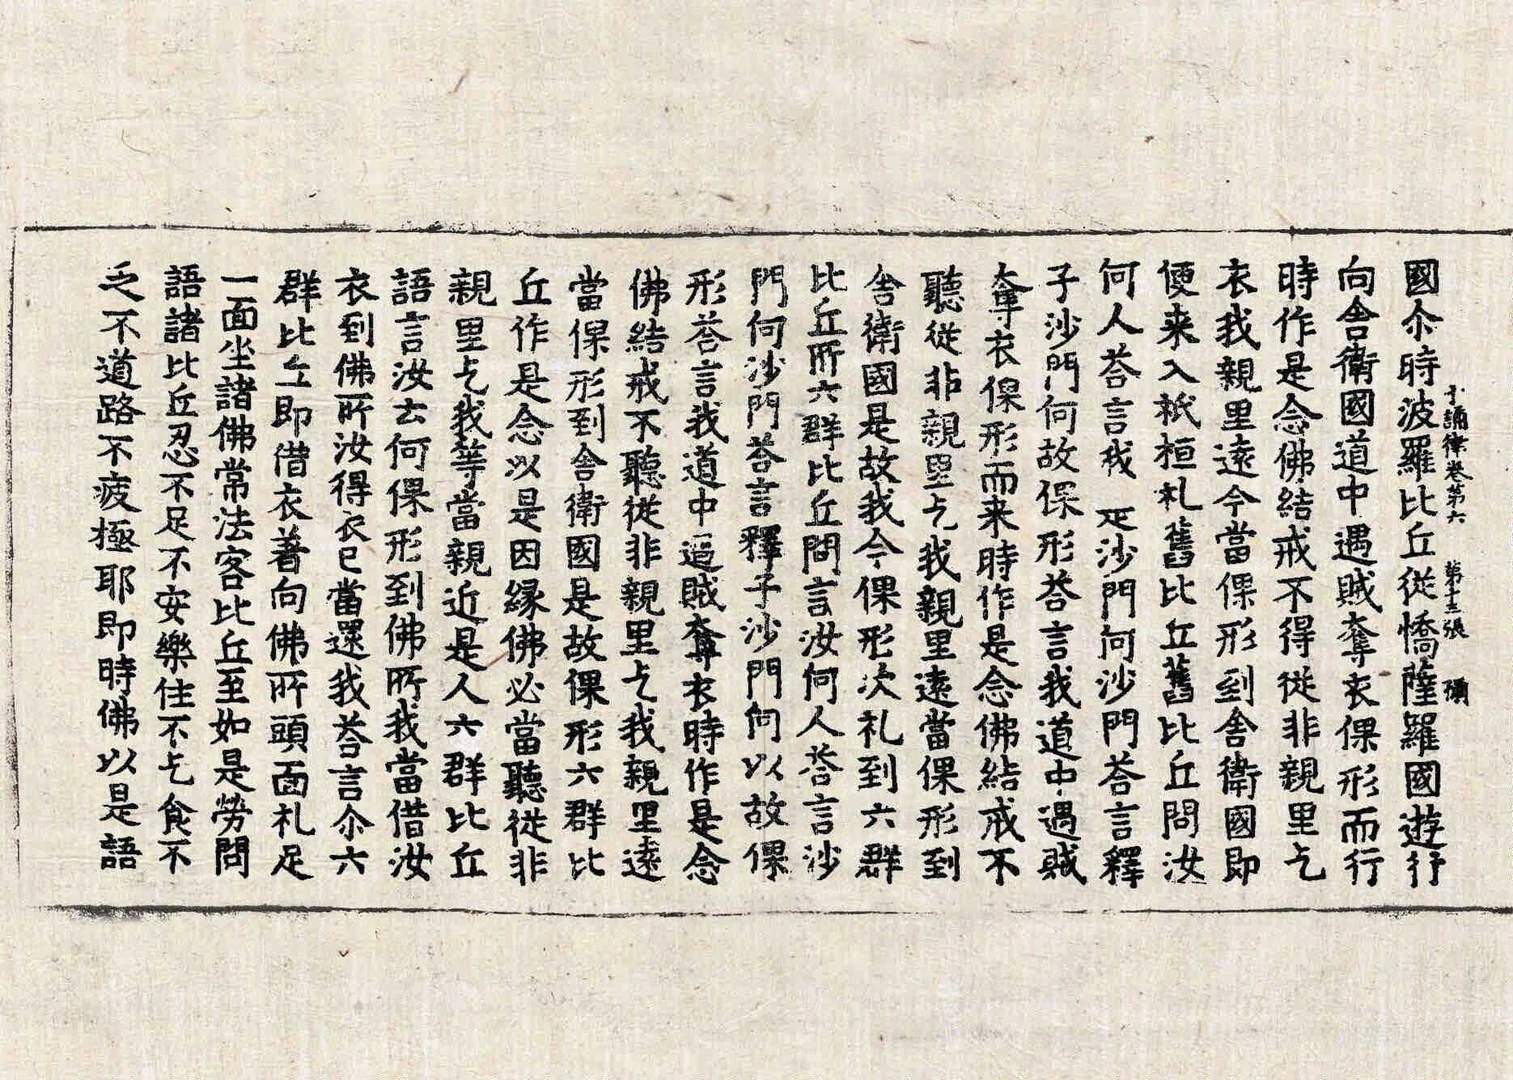 十誦律卷第六 第十三張
國尒時波羅比丘從憍薩羅國遊行
向舍衛國道中遇賊奪衣倮形而行
時作是念佛結戒不得從非親里乞
衣我親里遠今當倮形到舍衛國即
便來入祇桓礼舊比丘舊比丘問汝
何人荅言我是沙門何沙門荅言釋
子沙門何故倮形荅言我道中遇賊
奪衣倮形而来時作是念佛結戒不
聽從非親里乞我親里遠當倮形到
舍衛國是故我今倮形次礼到六群
比丘所六群比丘問言汝何人荅言沙
門何沙門荅言釋子沙門何以故倮
形荅言我道中遇賊奪衣時作是念
佛結戒不聽從非親里乞我親里遠
當倮形到舍衛國是故倮形六群比
丘作是念以是因縁佛必當聽從非
親里乞我等當親近是人六群比丘
語言汝去何倮形到佛所我當借汝
衣到佛所汝得衣已當還我荅言尒六
群比丘即借衣著向佛所頭面礼足
一面坐諸佛常法客比丘至如是勞問
語諸比丘忍不足不安樂住不乞食不
乏不道路不疲極耶即時佛以是語